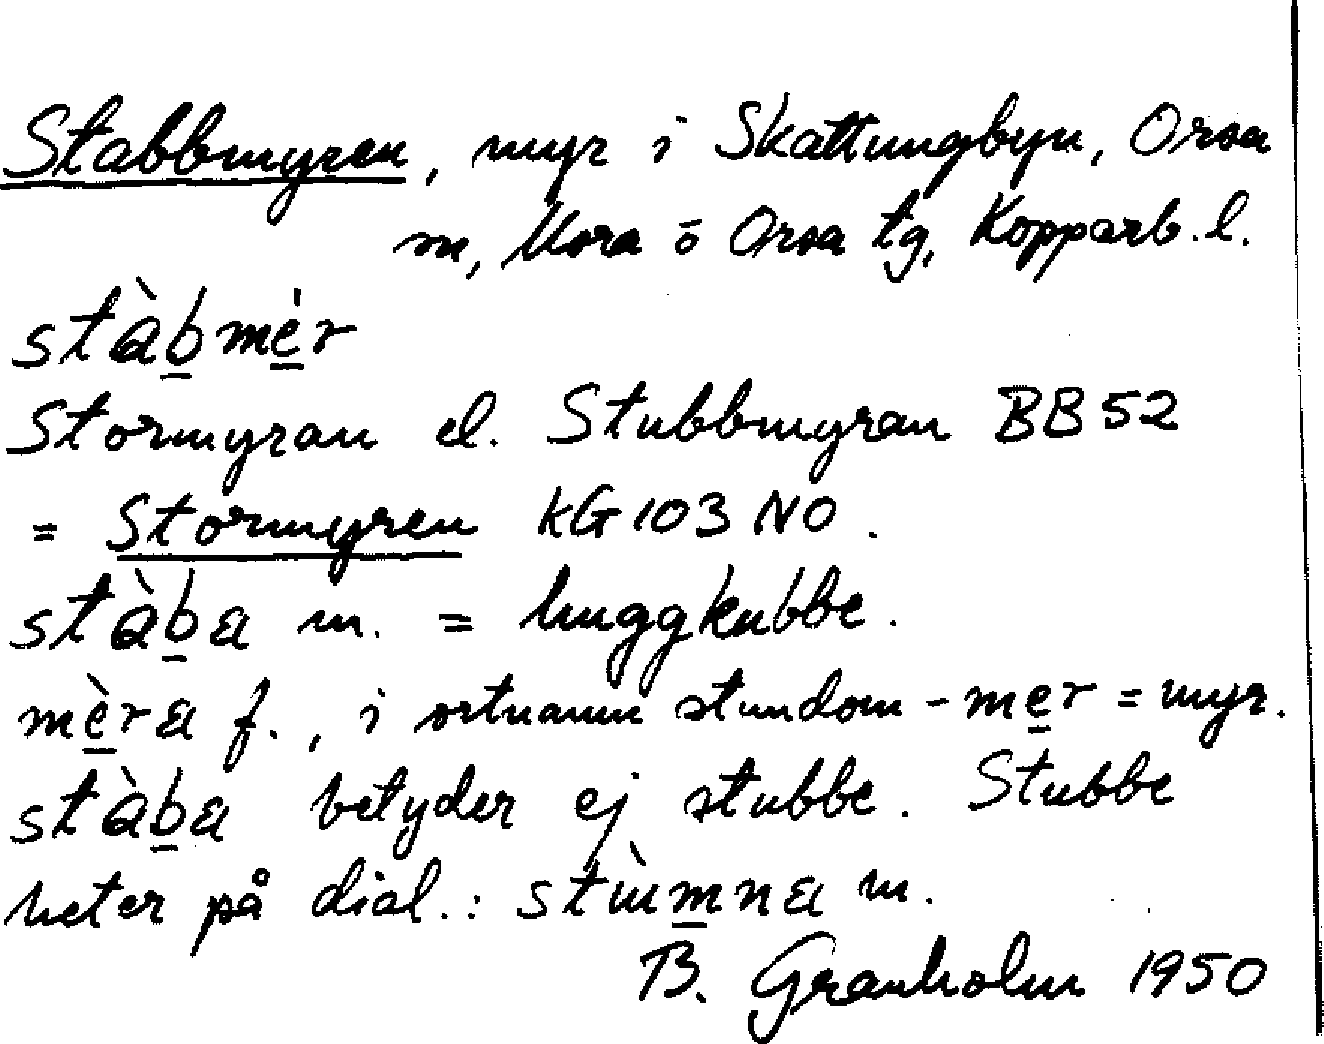 Stabbmyren, myr i Skattungbyn, Orsa
sn, Mora o Orsa tg, Kopparb. l.
stàb̲mè̲r
Stormyran el. Stubbmyran BB 52
= Stormyren KG 103 NO.
stàb̲a m. = huggkubbe.
mè̲ra f., i ortnamn stundom -me̲r = myr.
stàb̲a betyder ej stubbe. Stubbe
heter på dial.: m.
B. Granholm 1950